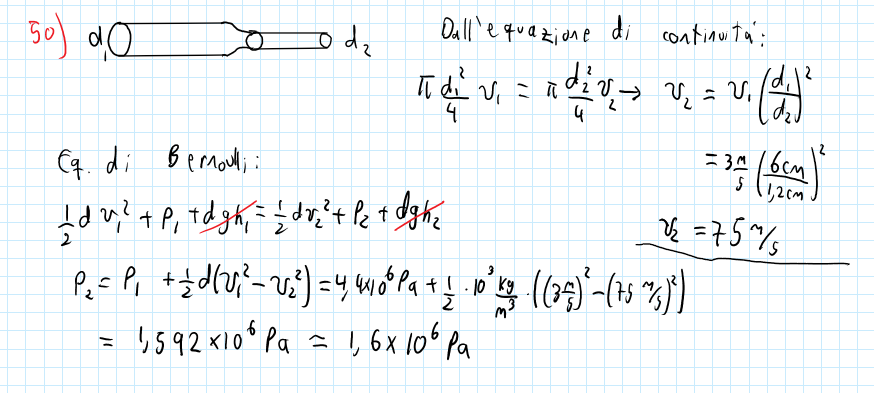 50) d₁ d₂ Dall'equazione di continuità:
π d₁²/4 v₁ = π d₂²/4 v₂ → v₂ = v₁ (d₁/d₂)²
= 3 m/s (6cm/1,2cm)²
v₂ = 75 m/s
Eq. di Bernoulli:
1/2 d v₁² + P₁ + dgh₁ = 1/2 dv₂² + P₂ + dgh₂
P₂ = P₁ + 1/2 d(v₁² - v₂²) = 4,4x10⁶ Pa + 1/2 · 10³ kg/m³ · ((3 m/s)² - (75 m/s)²)
= 1,592 x10⁶ Pa ≃ 1,6 x 10⁶ Pa